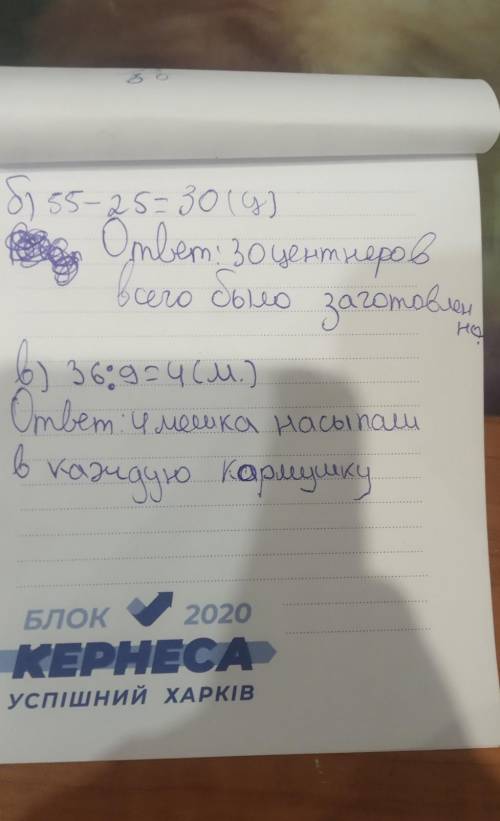 б) 55-25=30(ц)
Ответ: 30 центнеров
всего было заготовлен
но.
в) 36:9=4(м.)
Ответ: 4 мешка насыпали
в каждую кормушку
БЛОК 2020
КЕРНЕСА
УСПІШНИЙ ХАРКІВ